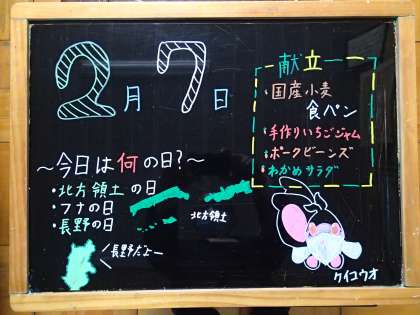 2月7日
献立
・国産小麦
食パン
・手作りいちごジャム
・ポークビーンズ
・わかめサラダ
～今日は何の日?～
・北方領土の日
・フナの日
・長野の日
北方領土
長野だよー
ケイコウオ